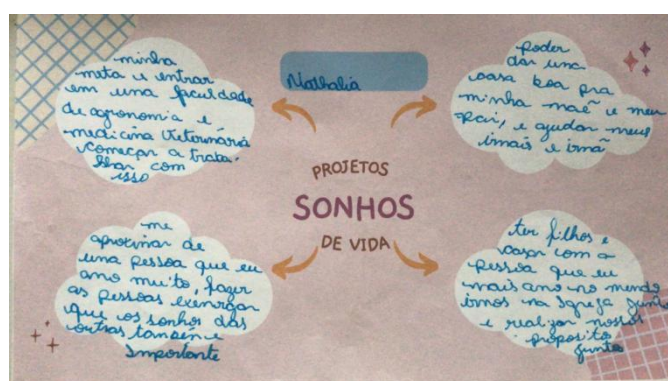 minha
meta e entrar
em uma faculdade
de agronomia e
medicina Veterinária
começar a traba-
lhar com
isso
Nathalia
poder
dar uma
casa boa pra
minha mãe e meu
pai, e ajudar meus
irmais e irmã
PROJETOS
SONHOS
DE VIDA
me
aproximar de
uma pessoa que eu
amo muito, fazer
as pessoas enxergar
que os sonhos das
outras também e
Importante
ter filhos e
casar com a
pessoa que eu
mais amo no mundo
irmos na Igreja junto
e realizar nossos
proposito
juntos